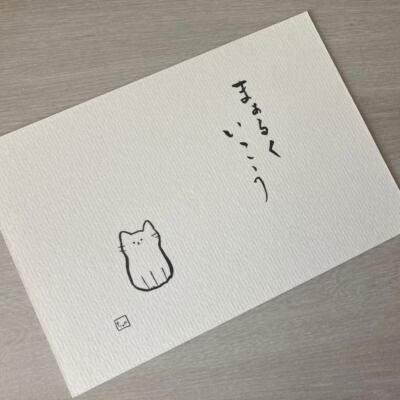 まぁるく
いこう